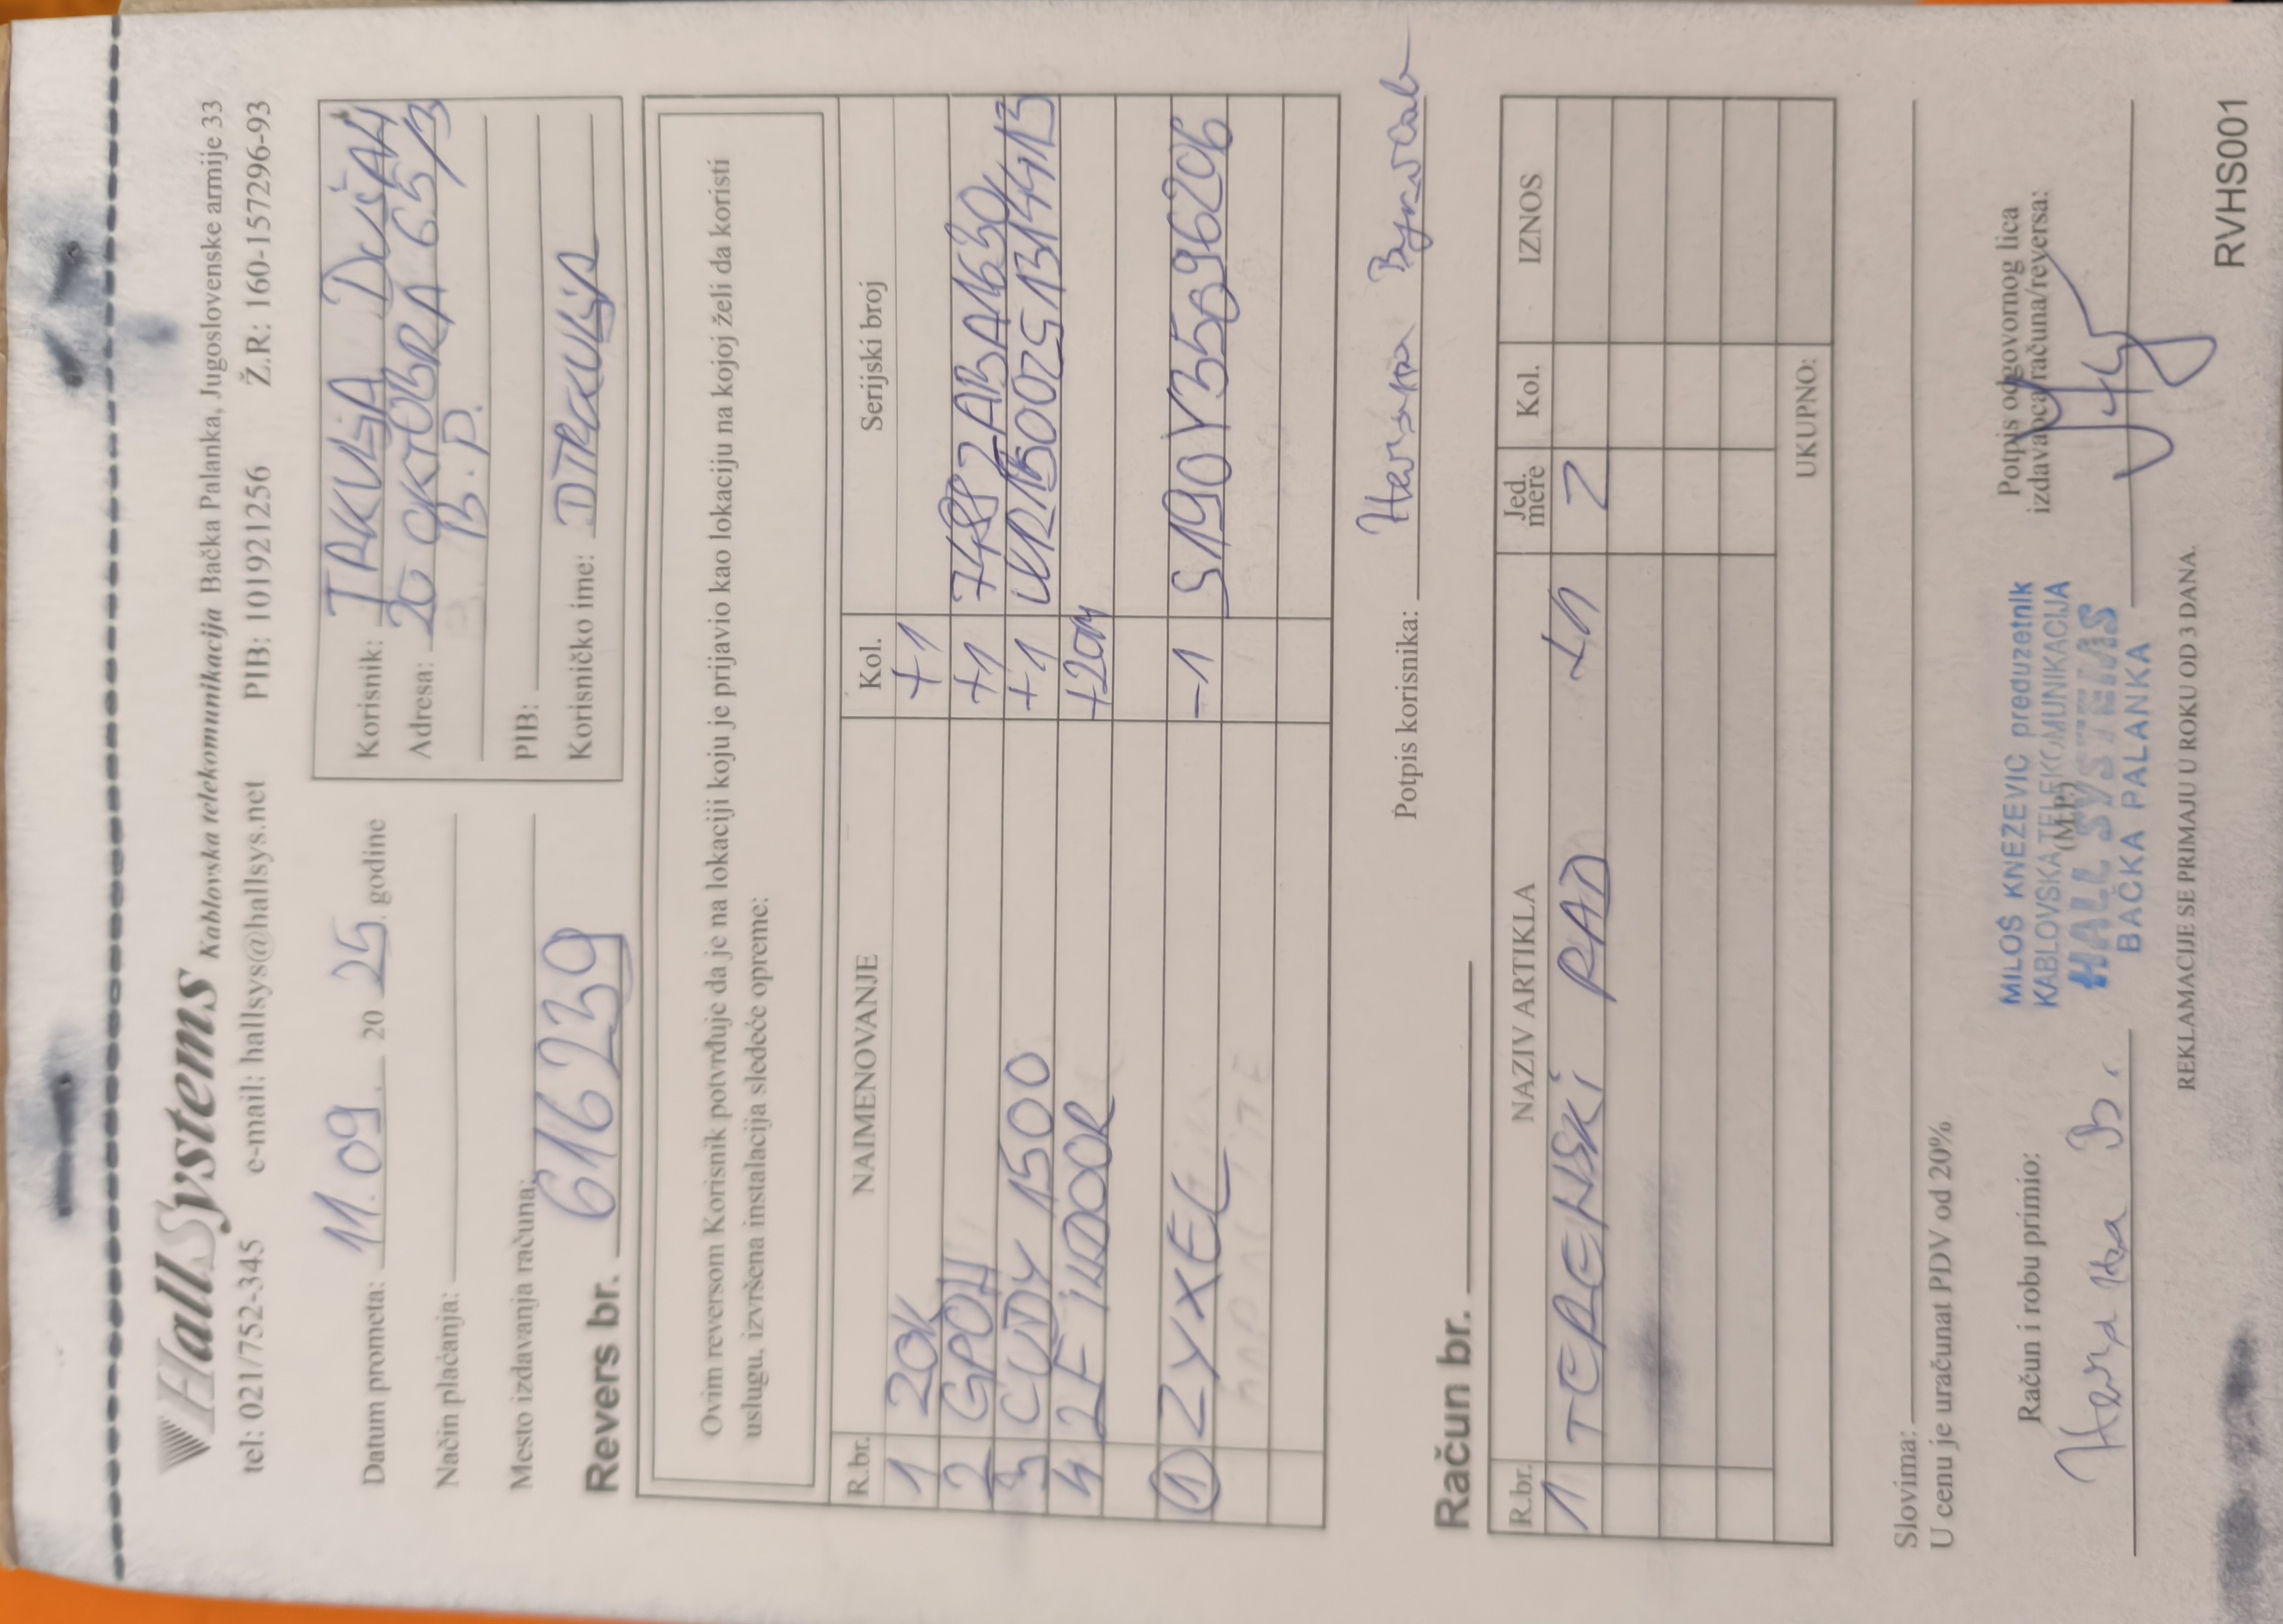 HallSystems Kablovska telekomunikacija Bačka Palanka, Jugoslovenske armije 33
tel: 021/752-345 e-mail: hallsys@hallsys.net PIB: 101921256 Ž.R: 160-157296-93
Datum prometa: 11.09. 20 25. godine
Način plaćanja:
Mesto izdavanja računa:
Korisnik: TRKULJA DUŠAN
Adresa: 20 OKTOBRA 65/3
B.P.
PIB:
Korisničko ime: DTRKULJA
Revers br. 616239
Ovim reversom Korisnik potvrđuje da je na lokaciji koju je prijavio kao lokaciju na kojoj želi da koristi
uslugu, izvršena instalacija sledeće opreme:
R.br. NAIMENOVANJE Kol. Serijski broj
1 ZOK +1
2 GPON +1
3 CUDY 1500 +1
4 2F INDOOR +20M
1 ZYXEL -1 S190Y35
Potpis korisnika:
Račun br.
R.br. NAZIV ARTIKLA Jed. mere Kol. IZNOS
1 TERENSKI RAD
UKUPNO:
Slovima:
U cenu je uračunat PDV od 20%
Račun i robu primio:
(M.P.)
MILOŠ KNEZEVIC preduzetnik
KABLOVSKA TELEKOMUNIKACIJA
HALL SYSTEMS
BAČKA PALANKA
Potpis odgovornog lica
izdavaoca računa/reversa:
REKLAMACIJE SE PRIMAJU U ROKU OD 3 DANA.
RVHS001